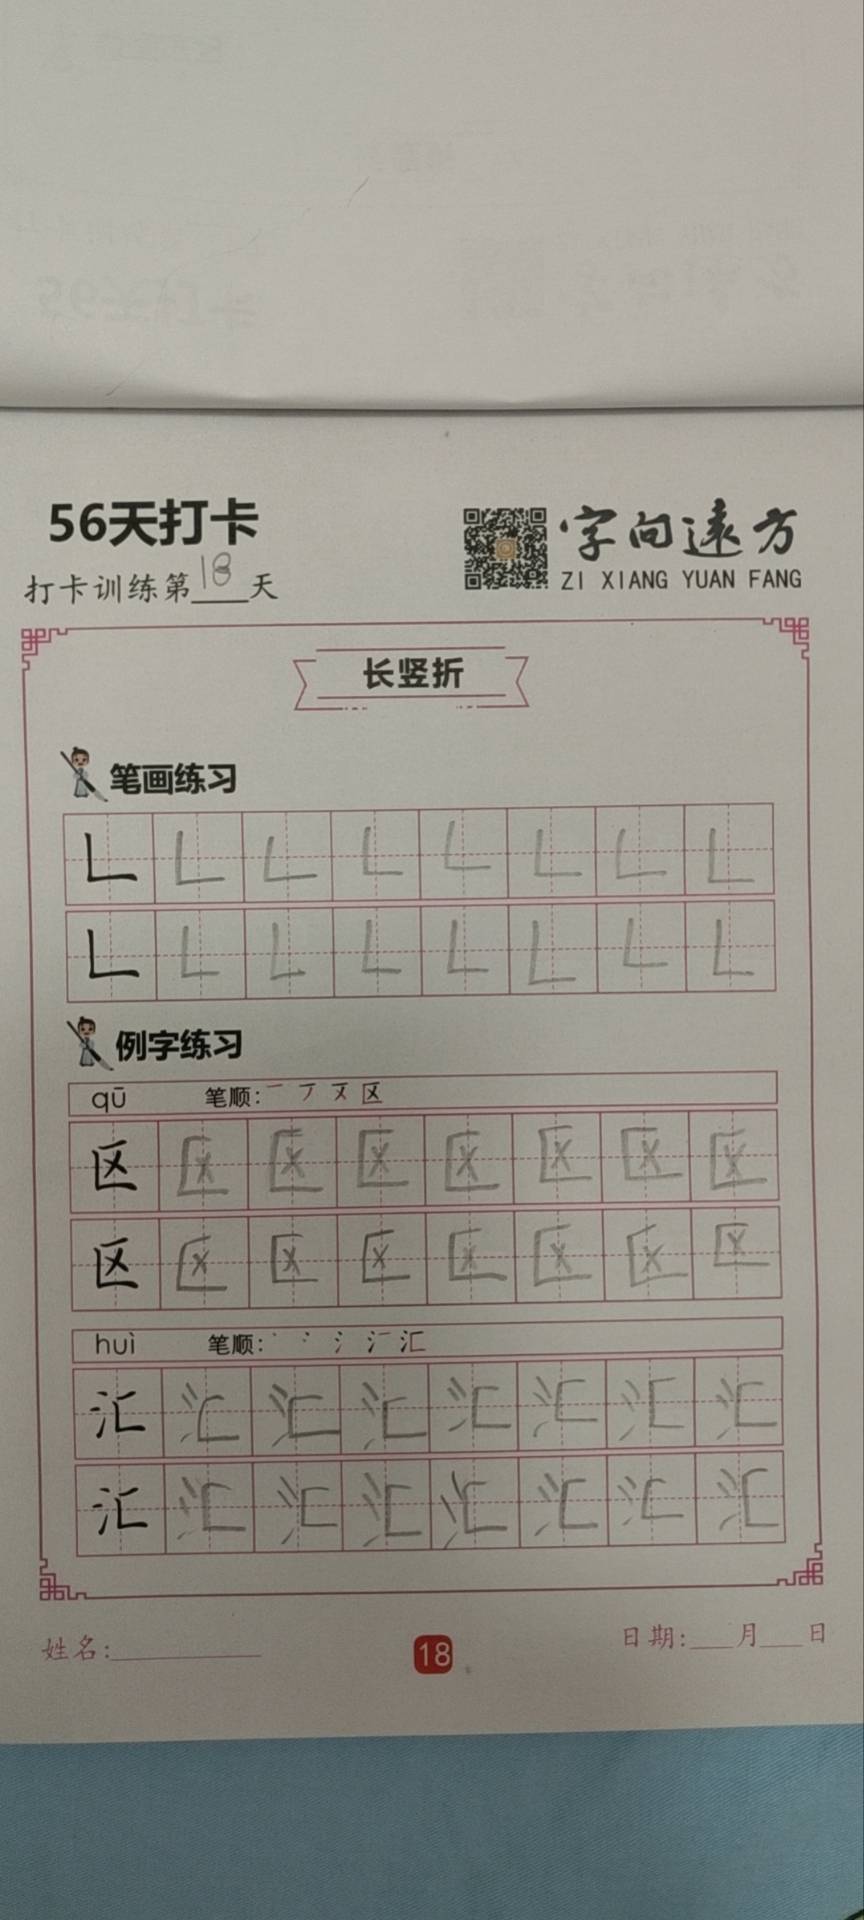 56天打卡
打卡训练第18天
字向远方
ZI XIANG YUAN FANG
长竖折
笔画练习
𠃊 𠃊 𠃊 𠃊 𠃊 𠃊 𠃊 𠃊
𠃊 𠃊 𠃊 𠃊 𠃊 𠃊 𠃊 𠃊
例字练习
qū 笔顺: 区
区 区 区 区 区 区 区 区
区 区 区 区 区 区 区 区
huì 笔顺: 汇
汇 汇 汇 汇 汇 汇 汇 汇
汇 汇 汇 汇 汇 汇 汇 汇
姓名:
18
日期:___月___日